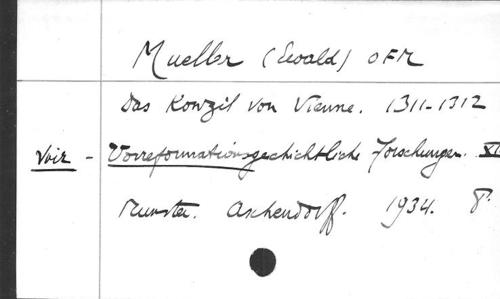 Mueller (Ewald) OFM
Das Konzil von Vienne. 1311-1312
Voir - Vorreformationsgeschichtliche Forschungen.
Munster. Aschendorff. 1934. 8°